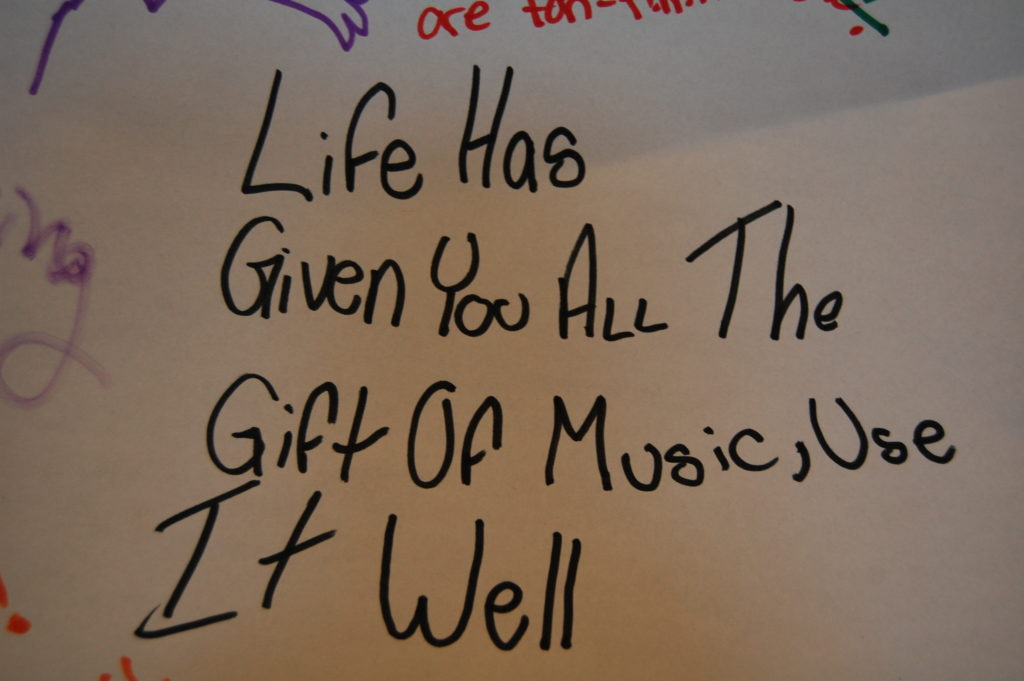 are
Life Has
Given You All The
Gift Of Music, Use
It Well